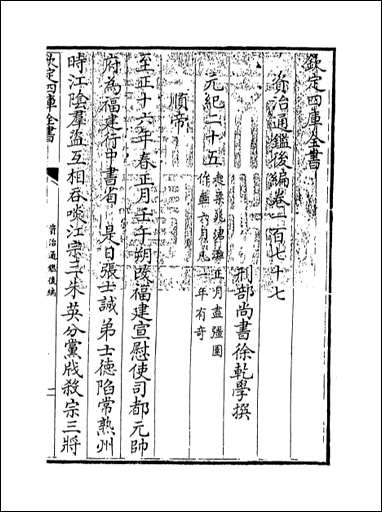 欽定四庫全書
資治通鑑後編卷一百七十七
刑部尚書徐乾學撰
元紀二十五
起柔兆涒灘正月盡彊圉
作噩六月凡一年有奇
順帝
至正十六年春正月壬午朔改福建宣慰使司都元帥
府為福建行中書省 是日張士誠弟士德陷常熟州
時江陰羣盜互相吞噬江宗三朱英分黨戕殺宗三將
欽定四庫全書
資治通鑑後編